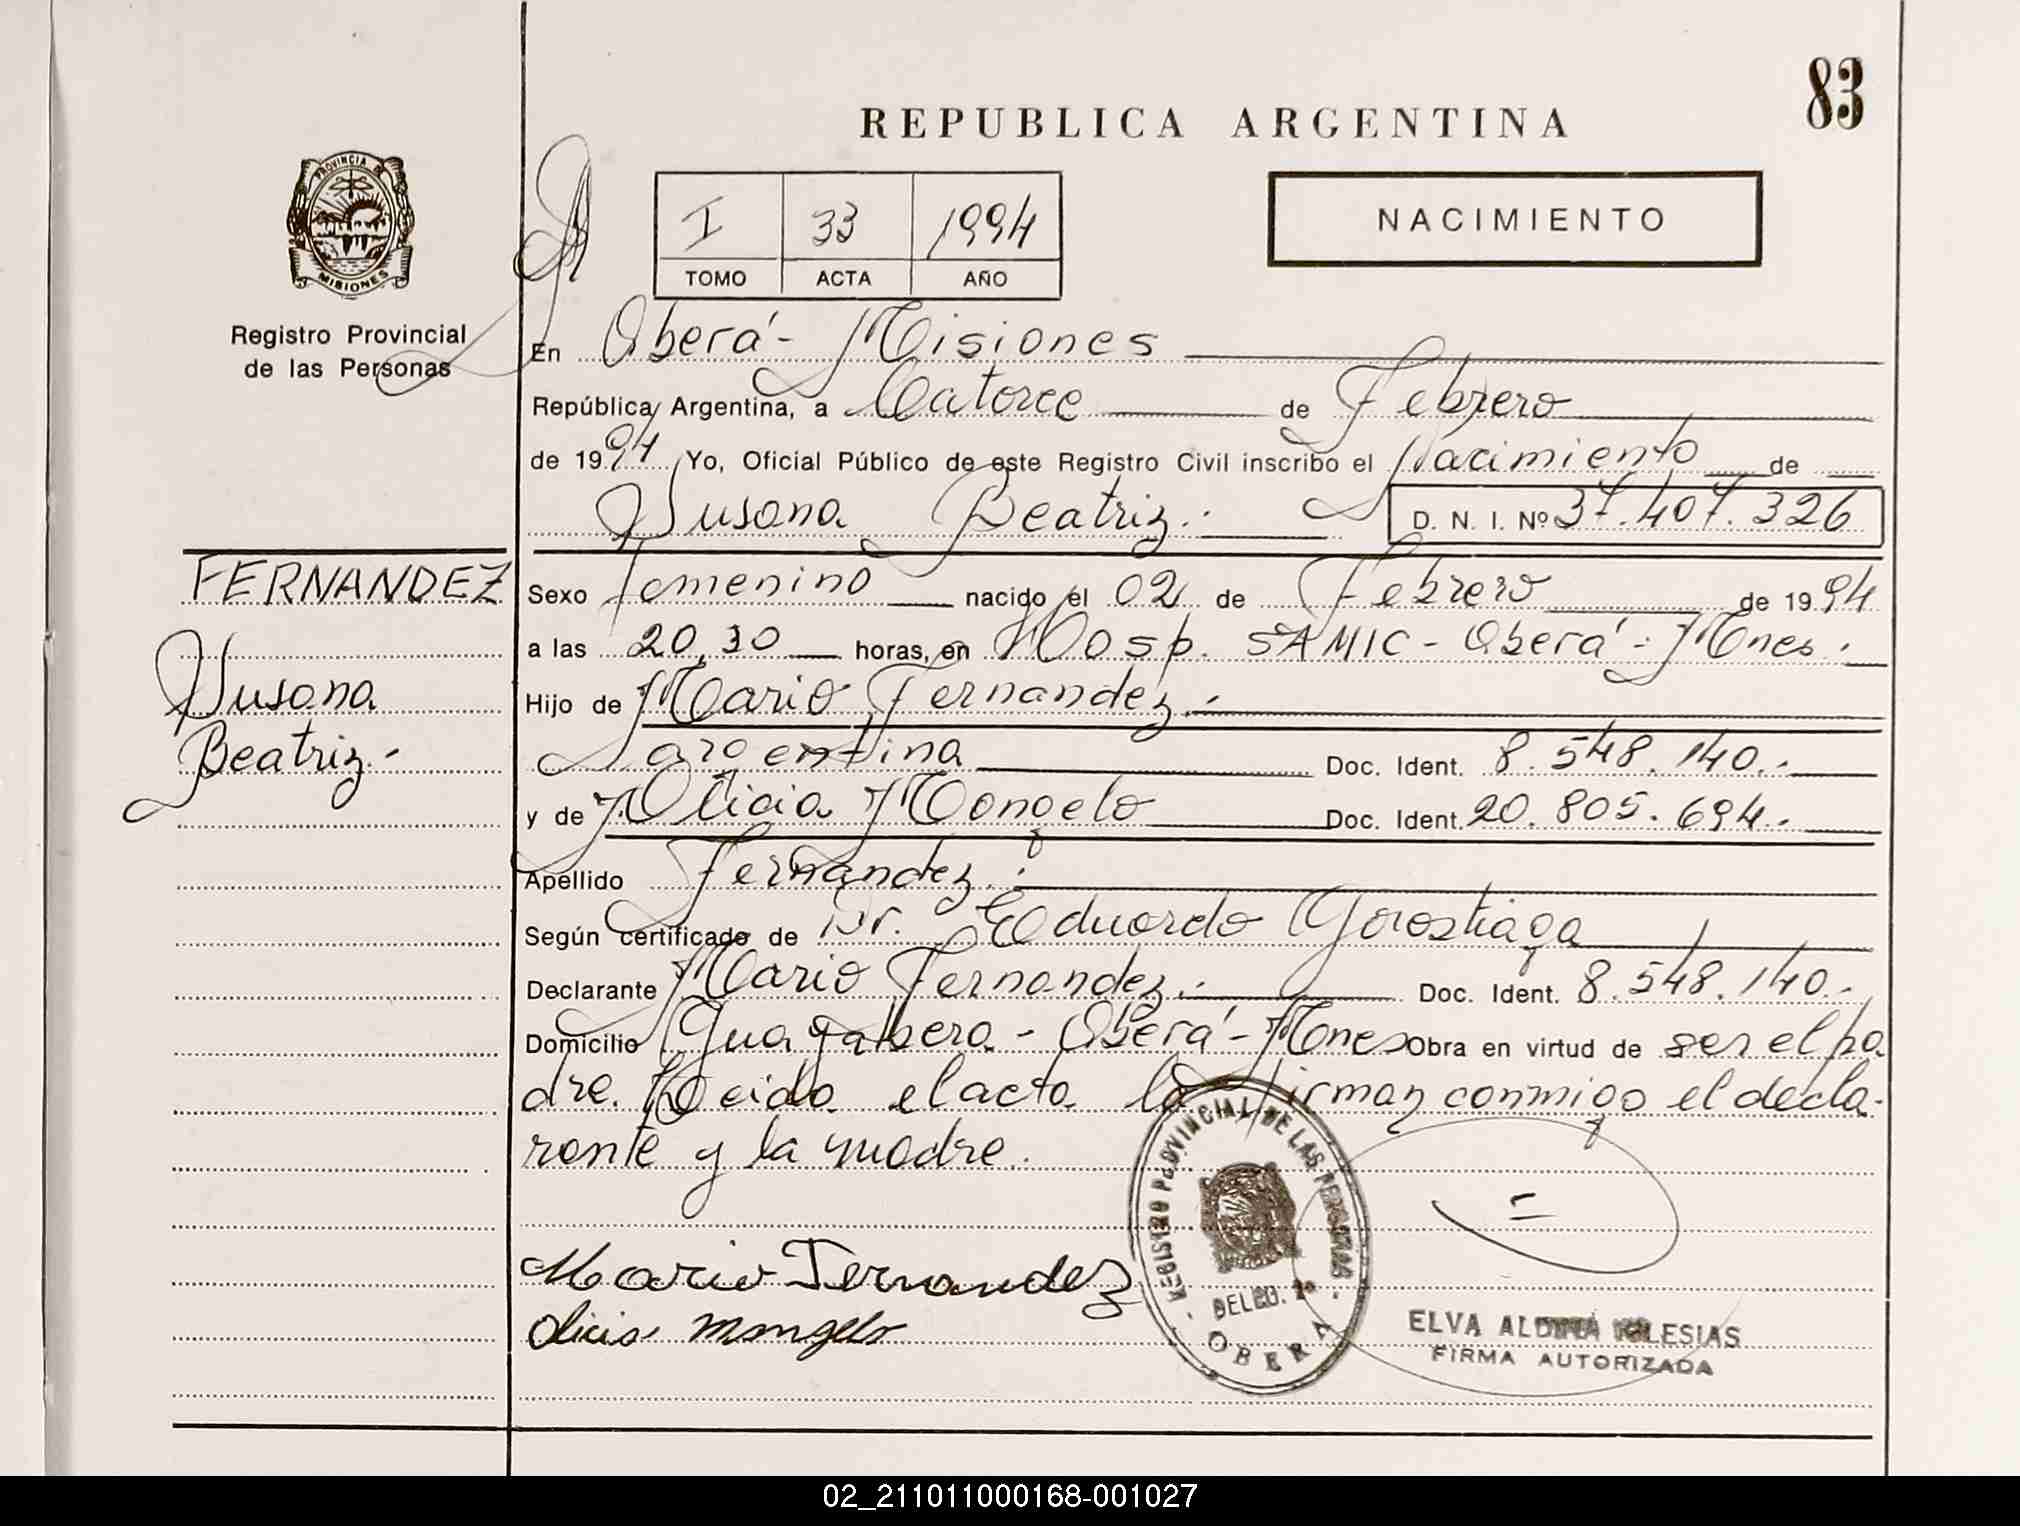 83
REPUBLICA ARGENTINA
PROVINCIA DE
MISIONES
I 33 1994
TOMO ACTA AÑO
NACIMIENTO
Registro Provincial
de las Personas
En Oberá - Misiones
República Argentina, a Catorce de Febrero
de 1994 Yo, Oficial Público de este Registro Civil inscribo el Nacimiento de
Susana Beatriz.- D. N. I. Nº 37.407.326
FERNANDEZ
Susana
Beatriz.-
Sexo femenino nacido el 02 de Febrero de 1994
a las 20,30 horas, en Hosp. SAMIC - Oberá - Mnes.
Hijo de Mario Fernandez.-
argentina Doc. Ident. 8.548.140.-
y de Alicia Mongelo Doc. Ident. 20.805.694.-
Apellido Fernandez.-
Según certificado de Dr. Eduardo Gorostiaga
Declarante Mario Fernandez.- Doc. Ident. 8.548.140.-
Domicilio - Oberá - Mnes Obra en virtud de ser el pa
dre. Leida el acta la firman conmigo el decla-
rante y la madre.
Mario Fernandez
Alicia Mongelo
REGISTRO PROVINCIAL DE LAS PERSONAS
OBERA
ELVA IGLESIAS
FIRMA AUTORIZADA
02_211011000168-001027